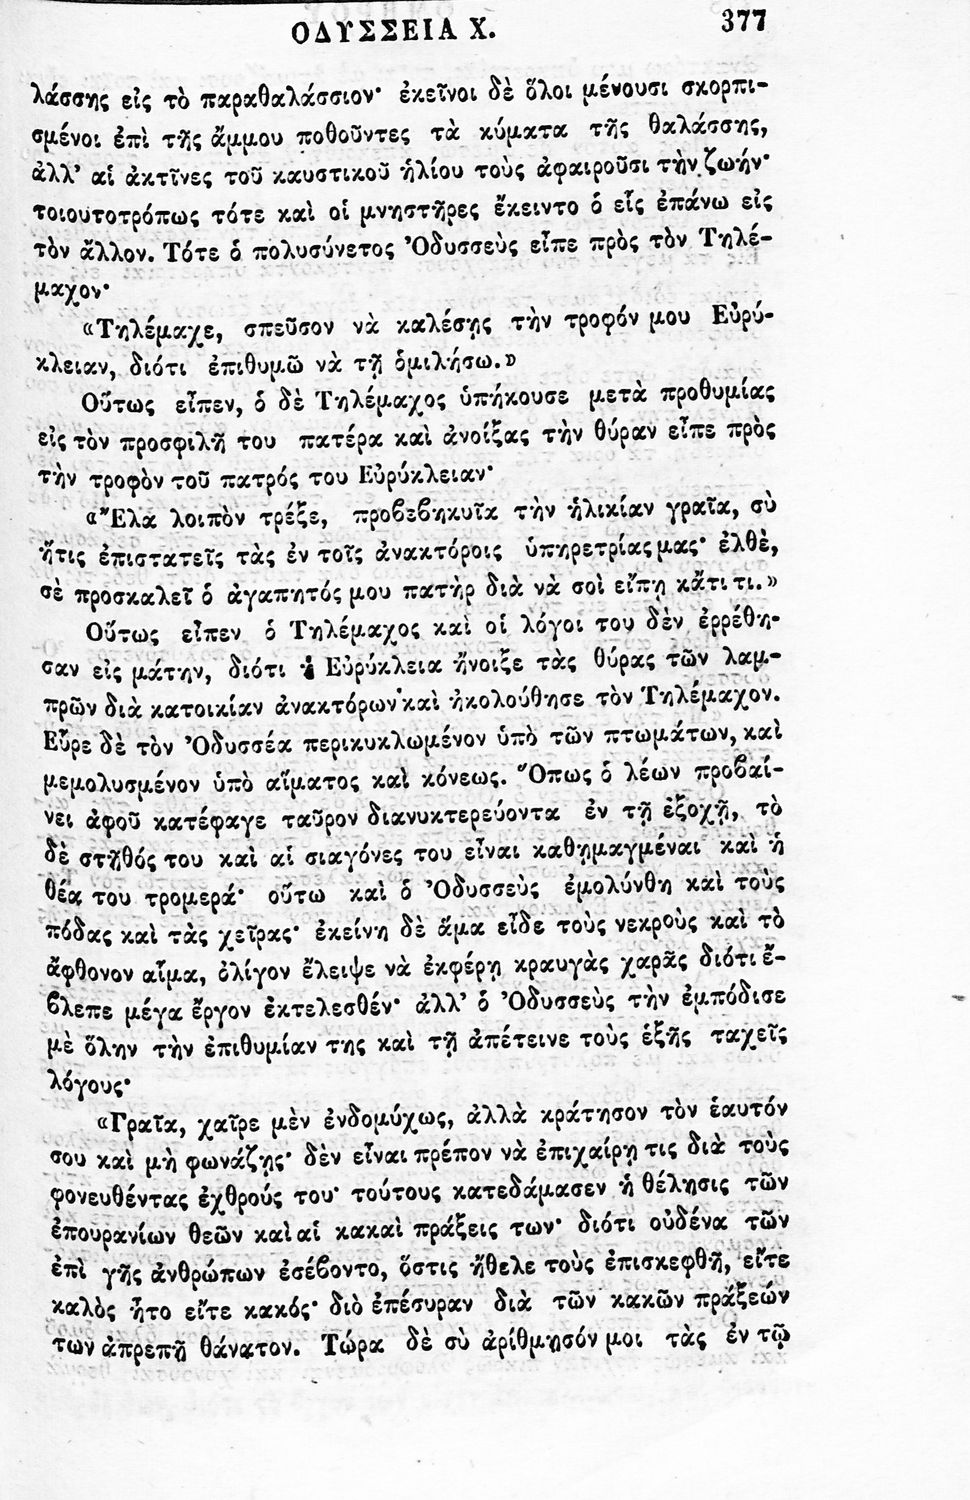 ΟΔΥΣΣΕΙΑ Χ. 377
λάσσης εἰς τὸ παραθαλάσσιον· ἐκεῖνοι δὲ ὅλοι μένουσι σκορπι-
σμένοι ἐπὶ τῆς ἄμμου ποθοῦντες τὰ κύματα τῆς θαλάσσης,
ἀλλ' αἱ ἀκτῖνες τοῦ καυστικοῦ ἡλίου τοὺς ἀφαιροῦσι τὴν ζωήν·
τοιουτοτρόπως τότε καὶ οἱ μνηστῆρες ἔκειντο ὁ εἷς ἐπάνω εἰς
τὸν ἄλλον. Τότε ὁ πολυσύνετος Ὀδυσσεὺς εἶπε πρὸς τὸν Τηλέ-
μαχον·
«Τηλέμαχε, σπεῦσον νὰ καλέσῃς τὴν τροφόν μου Εὐρύ-
κλειαν, διότι ἐπιθυμῶ νὰ τῇ ὁμιλήσω.»
Οὕτως εἶπεν, ὁ δὲ Τηλέμαχος ὑπήκουσε μετὰ προθυμίας
εἰς τὸν προσφιλῆ του πατέρα καὶ ἀνοίξας τὴν θύραν εἶπε πρὸς
τὴν τροφὸν τοῦ πατρός του Εὐρύκλειαν·
«Ἔλα λοιπὸν τρέξε, προβεβηκυῖα τὴν ἡλικίαν γραῖα, σὺ
ἥτις ἐπιστατεῖς τὰς ἐν τοῖς ἀνακτόροις ὑπηρετρίας μας· ἐλθὲ,
σὲ προσκαλεῖ ὁ ἀγαπητός μου πατὴρ διὰ νὰ σοὶ εἴπῃ κᾄτι τι.»
Οὕτως εἶπεν ὁ Τηλέμαχος καὶ οἱ λόγοι του δὲν ἐρρέθη-
σαν εἰς μάτην, διότι ἡ Εὐρύκλεια ἤνοιξε τὰς θύρας τῶν λαμ-
πρῶν διὰ κατοικίαν ἀνακτόρων καὶ ἠκολούθησε τὸν Τηλέμαχον.
Εὗρε δὲ τὸν Ὀδυσσέα περικυκλωμένον ὑπὸ τῶν πτωμάτων, καὶ
μεμολυσμένον ὑπὸ αἵματος καὶ κόνεως. Ὅπως ὁ λέων προβαί-
νει ἀφοῦ κατέφαγε ταῦρον διανυκτερεύοντα ἐν τῇ ἐξοχῇ, τὸ
δὲ στῆθός του καὶ αἱ σιαγόνες του εἶναι καθημαγμέναι καὶ ἡ
θέα του τρομερά· οὕτω καὶ ὁ Ὀδυσσεὺς ἐμολύνθη καὶ τοὺς
πόδας καὶ τὰς χεῖρας· ἐκείνη δὲ ἅμα εἶδε τοὺς νεκροὺς καὶ τὸ
ἄφθονον αἷμα, ὀλίγον ἔλειψε νὰ ἐκφέρῃ κραυγὰς χαρᾶς διότι ἔ-
βλεπε μέγα ἔργον ἐκτελεσθέν· ἀλλ' ὁ Ὀδυσσεὺς τὴν ἐμπόδισε
μὲ ὅλην τὴν ἐπιθυμίαν της καὶ τῇ ἀπέτεινε τοὺς ἑξῆς ταχεῖς
λόγους·
«Γραῖα, χαῖρε μὲν ἐνδομύχως, ἀλλὰ κράτησον τὸν ἑαυτόν
σου καὶ μὴ φωνάζῃς· δὲν εἶναι πρέπον νὰ ἐπιχαίρῃ τις διὰ τοὺς
φονευθέντας ἐχθρούς του· τούτους κατεδάμασεν ἡ θέλησις τῶν
ἐπουρανίων θεῶν καὶ αἱ κακαὶ πράξεις των· διότι οὐδένα τῶν
ἐπὶ γῆς ἀνθρώπων ἐσέβοντο, ὅστις ἤθελε τοὺς ἐπισκεφθῆ, εἴτε
καλὸς ἦτο εἴτε κακός· διὸ ἐπέσυραν διὰ τῶν κακῶν πράξεών
των ἀπρεπῆ θάνατον. Τώρα δὲ σὺ ἀρίθμησόν μοι τὰς ἐν τῷ